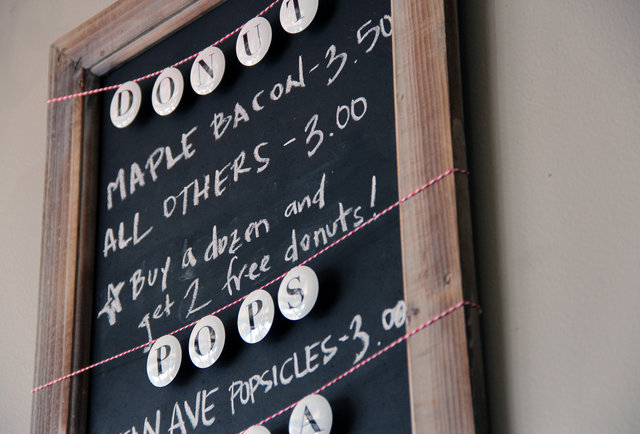 DONUT
MAPLE BACON - 3.50
ALL OTHERS - 3.00
☆ Buy a dozen and
get 2 free donuts!
POPS
WAVE POPSICLES - 3.00